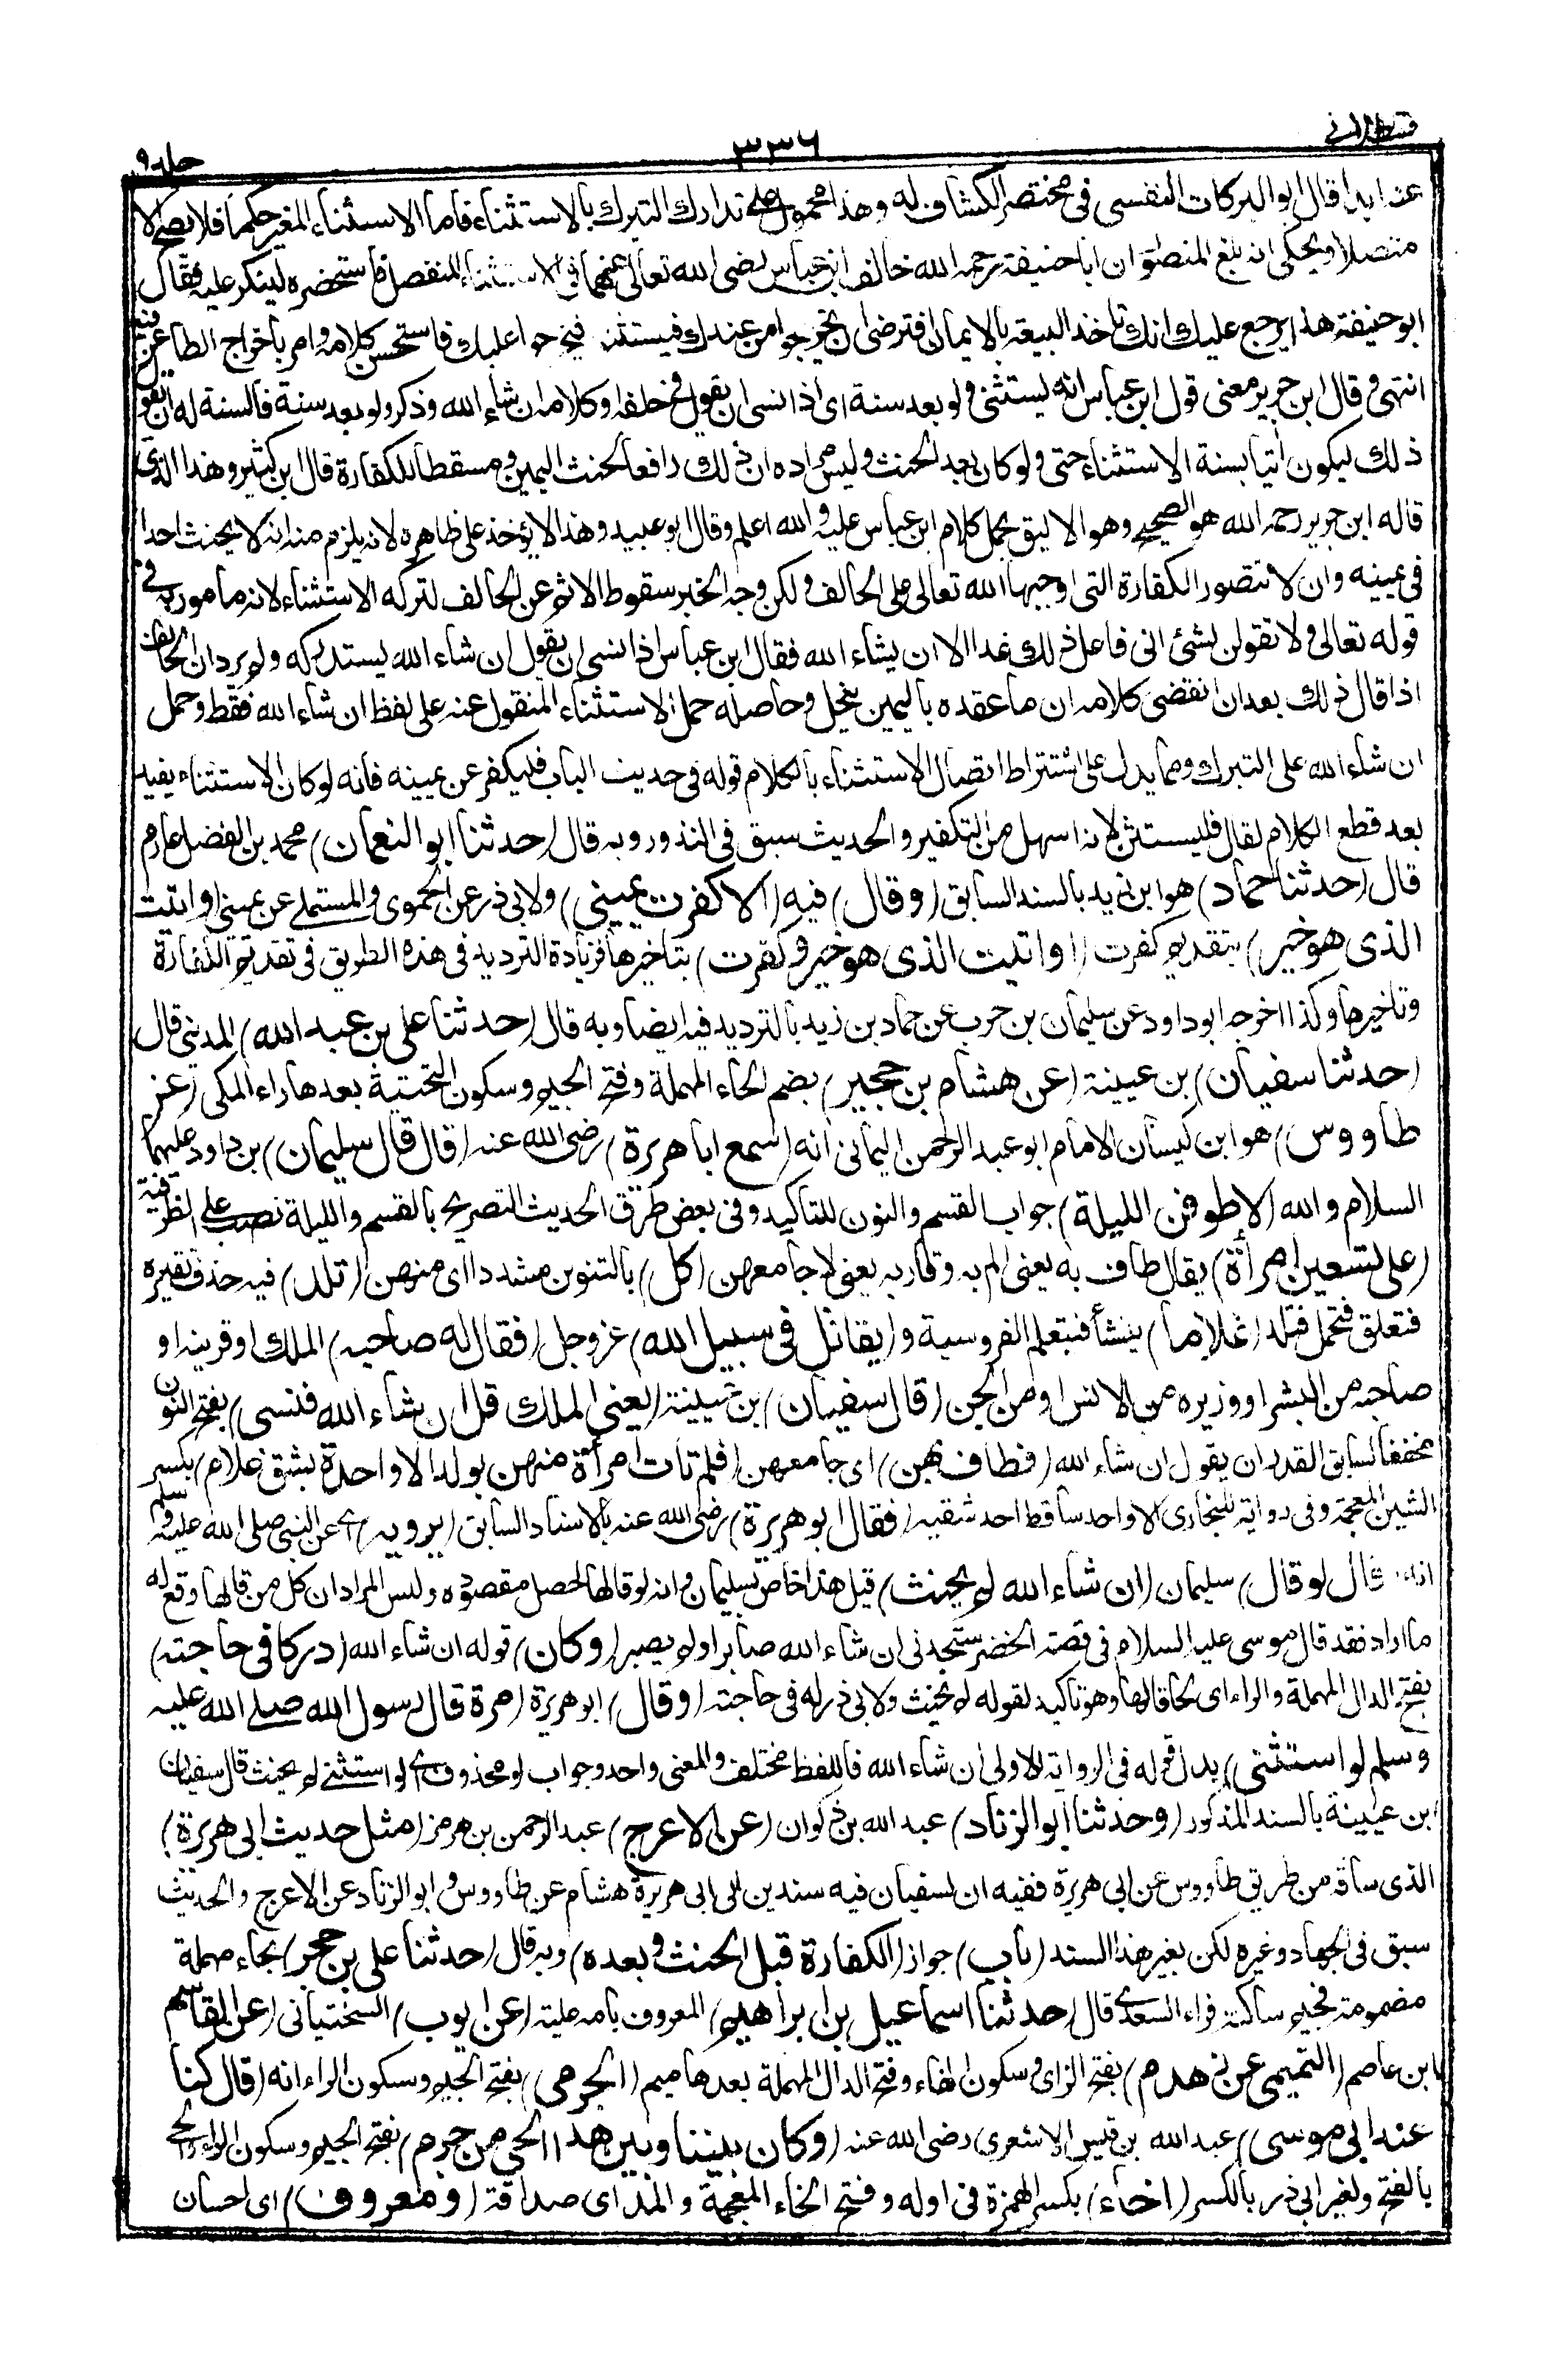 قسطلاني
٣٣٦
جلد ٩
عنه ابدا قال ابو البركات النسفي في مختصر الكشاف له وهذا محمول على تدارك التبرك بالاستثناء فاما الاستثناء المغير حكما فلا يصح الا
متصلا ويحكى انه بلغ المنصور ان ابا حنيفة رحمه الله خالف ابن عباس رضي الله تعالى عنهما في الاستثناء المنفصل فاستحضره لينكر عليه فقال
ابو حنيفة هذا يرجع عليك انك تاخذ البيعة بالايمان افترضى ان يخرجوا من عندك فيستثنوا فيخرجوا عليك فاستحسن كلامه وامر باخراج الطاعن فيه
انتهى وقال ابن جرير معنى قول ابن عباس انه يستثني ولو بعد سنة اى اذا نسي ان يقول في حلفه او كلامه ان شاء الله وذكر ولو بعد سنة فالسنة له ان يقول
ذلك ليكون آتيا بسنة الاستثناء حتى ولو كان بعد الحنث وليس مراده ان ذلك رافعا لحنث اليمين ومسقطا للكفارة قال ابن كثير وهذا الذي
قاله ابن جرير رحمه الله هو الصحيح وهو الاليق بحمل كلام ابن عباس عليه والله اعلم وقال ابو عبيد وهذا لا يؤخذ على ظاهره لانه يلزم منه انه لا يحنث احدا
في يمينه وان لا تتصور الكفارة التي اوجبها الله تعالى على الحالف ولكن وجه الخبر سقوط الاثم عن الحالف لتركه الاستثناء لانه مامور به في
قوله تعالى ولا تقولن لشئ اني فاعل ذلك غدا الا ان يشاء الله فقال ابن عباس اذا نسي ان يقول ان شاء الله يستدركه ولم يرد ان الحالف
اذا قال ذلك بعد ان انقضى كلامه ان ما عقده باليمين ينحل وحاصله حمل الاستثناء المنقول عنه على لفظ ان شاء الله فقط وحمل
ان شاء الله على التبرك ومما يدل على اشتراط اتصال الاستثناء بالكلام قوله في حديث الباب فليكفر عن يمينه فانه لو كان الاستثناء يفيد
بعد قطع الكلام لقال فليستثن لانه اسهل من التكفير والحديث سبق في النذور وبه قال (حدثنا ابو النعمان) محمد بن الفضل عارم
قال (حدثنا حماد) هو ابن زيد بالسند السابق (وقال) فيه (الا كفرت يميني) ولابي ذر عن الحموي والمستملي عن يميني (واتيت
الذى هو خير) بتقديم كفرت (او اتيت الذى هو خير وكفرت) بتاخيرها فزيادة الترديد في هذه الطريق في تقديم الكفارة
وتاخيرها وكذا اخرجه ابو داود عن سليمان بن حرب عن حماد بن زيد بالترديد فيه ايضا وبه قال (حدثنا علي بن عبد الله) المديني قال
(حدثنا سفيان) بن عيينة (عن هشام بن حجير) بضم الحاء المهملة وفتح الجيم وسكون التحتية بعدها راء المكي (عن
طاووس) هو ابن كيسان الامام ابو عبد الرحمن اليماني انه (سمع ابا هريرة) رضي الله عنه (قال قال سليمان) بن داود عليهما
السلام والله (لاطوفن الليلة) جواب القسم والنون للتاكيد وفي بعض طرق الحديث التصريح بالقسم والليلة نصب على الظرفية
(على تسعين امرأة) يقال طاف به يعنى الم به وقاربه يعنى لاجامعهن (كل) بالتنوين مشددا اى منهن (تلد) فيه حذف تقديره
فتعلق فتحمل فتلد (غلاما) ينشأ فيتعلم الفروسية و(يقاتل في سبيل الله) عز وجل (فقال له صاحبه) الملك او قرينه او
صاحبه من البشر او وزيره من الانس او من الجن (قال سفيان) بن عيينة (يعني الملك قل ان شاء الله فنسي) بفتح النون
مخففا لسابق القدر ان يقول ان شاء الله (فطاف بهن) اى جامعهن (فلم تات امرأة منهن بولد الا واحدة بشق غلام) بكسر
الشين المعجمة وفي رواية للبخاري الا واحد ساقط احد شقيه (فقال ابو هريرة) رضي الله عنه بالاسناد السابق (يرويه) اى عن النبي صلى الله عليه وسلم
انه قال لو قال) سليمان (ان شاء الله لم يحنث) قيل هذا خاص بسليمان وانه لو قالها لحصل مقصوده وليس المراد ان كل من قالها وقع له
ما اراد فقد قال موسى عليه السلام في قصة الخضر ستجدني ان شاء الله صابرا ولم يصبر (وكان) قوله ان شاء الله (دركا في حاجته)
بفتح الدال المهملة والراء اى لحاقا لها وهو تاكيد لقوله لم يحنث ولابي ذر له في حاجته (وقال) ابو هريرة (مرة قال رسول الله صلى الله عليه
وسلم لو استثنى) بدل قوله في الرواية الاولى ان شاء الله فاللفظ مختلف والمعنى واحد وجواب لو محذوف اى لو استثنى لم يحنث قال سفيان
ابن عيينة بالسند المذكور (وحدثنا ابو الزناد) عبد الله بن ذكوان (عن الاعرج) عبد الرحمن بن هرمز (مثل حديث ابي هريرة)
الذى ساقه من طريق طاووس عن ابي هريرة ففيه ان لسفيان فيه سندين الى ابي هريرة هشام عن طاووس وابو الزناد عن الاعرج والحديث
سبق في الجهاد وغيره لكن بغير هذا السند (باب) جواز (الكفارة قبل الحنث وبعده) وبه قال (حدثنا علي بن حجر) بحاء مهملة
مضمومة فجيم ساكنة فراء السعدى قال (حدثنا اسماعيل بن ابراهيم) المعروف بامه علية (عن ايوب) السختياني (عن القاسم
ابن عاصم (التميمي عن زهدم) بفتح الزاى وسكون الهاء وفتح الدال المهملة بعدها ميم (الجرمي) بفتح الجيم وسكون الراء انه (قال كنا
عند ابي موسى) عبد الله بن قيس الاشعري رضي الله عنه (وكان بيننا وبين هذا الحي من جرم) بفتح الجيم وسكون الراء الحي
بالفتح ولغير ابي ذر بالكسر (اخاء) بكسر الهمزة في اوله وفتح الخاء المعجمة والمد اى صداقة (ومعروف) اى احسان